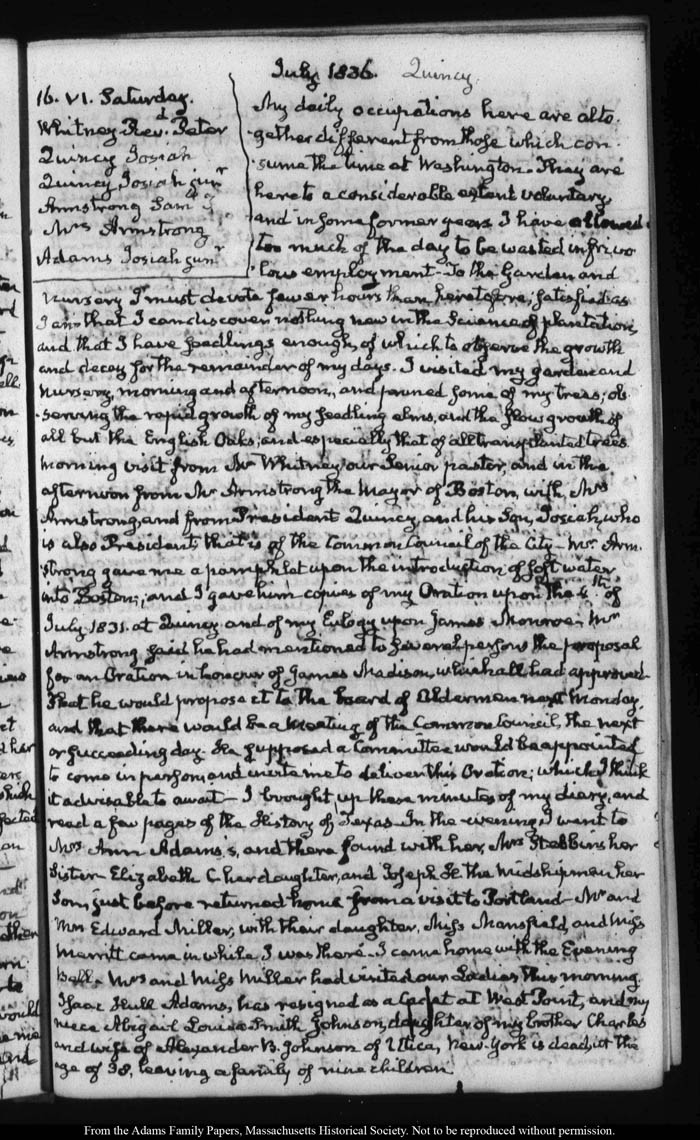 July 1836. Quincy.
16. VI. Saturday.
Whitney Revd. Peter
Quincy Josiah
Quincy Josiah junr
Armstrong Saml T
Mrs Armstrong
Adams Josiah junr
My daily occupations here are alto-
gether different from those which con-
sume the time at Washington. They are
here to a considerable extent voluntary,
and in some former years I have allowed
too much of the day to be wasted in frivo-
lous employment. To the Garden and
nursery I must devote fewer hours than heretofore; satisfied as
I am that I can discover nothing new in the Science of plantation,
and that I have seedlings enough, of which to observe the growth
and decay for the remainder of my days. I visited my garden and
nursery, morning and afternoon, and pruned some of my trees; ob-
serving the rapid growth of my seedling elms, and the slow growth of
all but the English Oaks; and especially that of all transplanted trees.
Morning visit from Mr Whitney our Senior pastor, and in the
afternoon from Mr Armstrong the Mayor of Boston, with Mrs
Armstrong, and from President Quincy, and his Son, Josiah, who
is also President, that is of the Common Council of the City. Mr. Arm-
strong gave me a pamphlet upon the introduction of soft water
into Boston; and I gave him copies of my Oration upon the 4th. of
July 1831. at Quincy and of my Eulogy upon James Monroe. Mr
Armstrong said he had mentioned to several persons the proposal
for an Oration in honour of James Madison, which all had approved
that he would propose it to the board of Aldermen next Monday,
and that there would be a meeting of the Common Council, the next
or succeeding day. He supposed a Committee would be appointed
to come in person and invite me to deliver this Oration; which I think
it advisable to await. I brought up these minutes of my diary, and
read a few pages of the History of Texas. In the evening, I went to
Mrs. Ann Adams's, and there found with her, Mrs Stebbins her
Sister Elizabeth C her daughter, and Joseph H. the Midshipman her
Son, just before returned home from a visit to Portland. Mr and
Mrs Edward Miller, with their daughter, Miss Mansfield, and Miss
Merritt came in while I was there. I came home with the Evening
Bell. Mrs and Miss Miller had visited our Ladies this morning.
Isaac Hull Adams, has resigned as a Cadet at West Point, and my
niece Abigail Louisa Smith Johnson, daughter of my brother Charles
and wife of Alexander B. Johnson of Utica, New-York is dead, at the
age of 38, leaving a family of nine children.
From the Adams Family Papers, Massachusetts Historical Society. Not to be reproduced without permission.